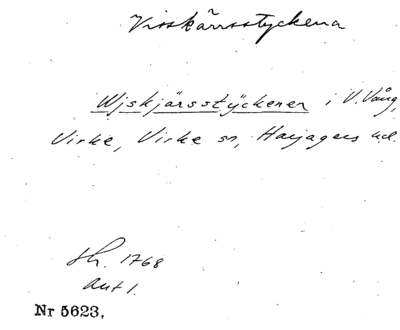 Visskärrsstyckena
Wjskjärsstÿckener i V. Vång,
Virke, Virke sn, Harjagers hd.
sk. 1768
akt 1.
Nr 5623.